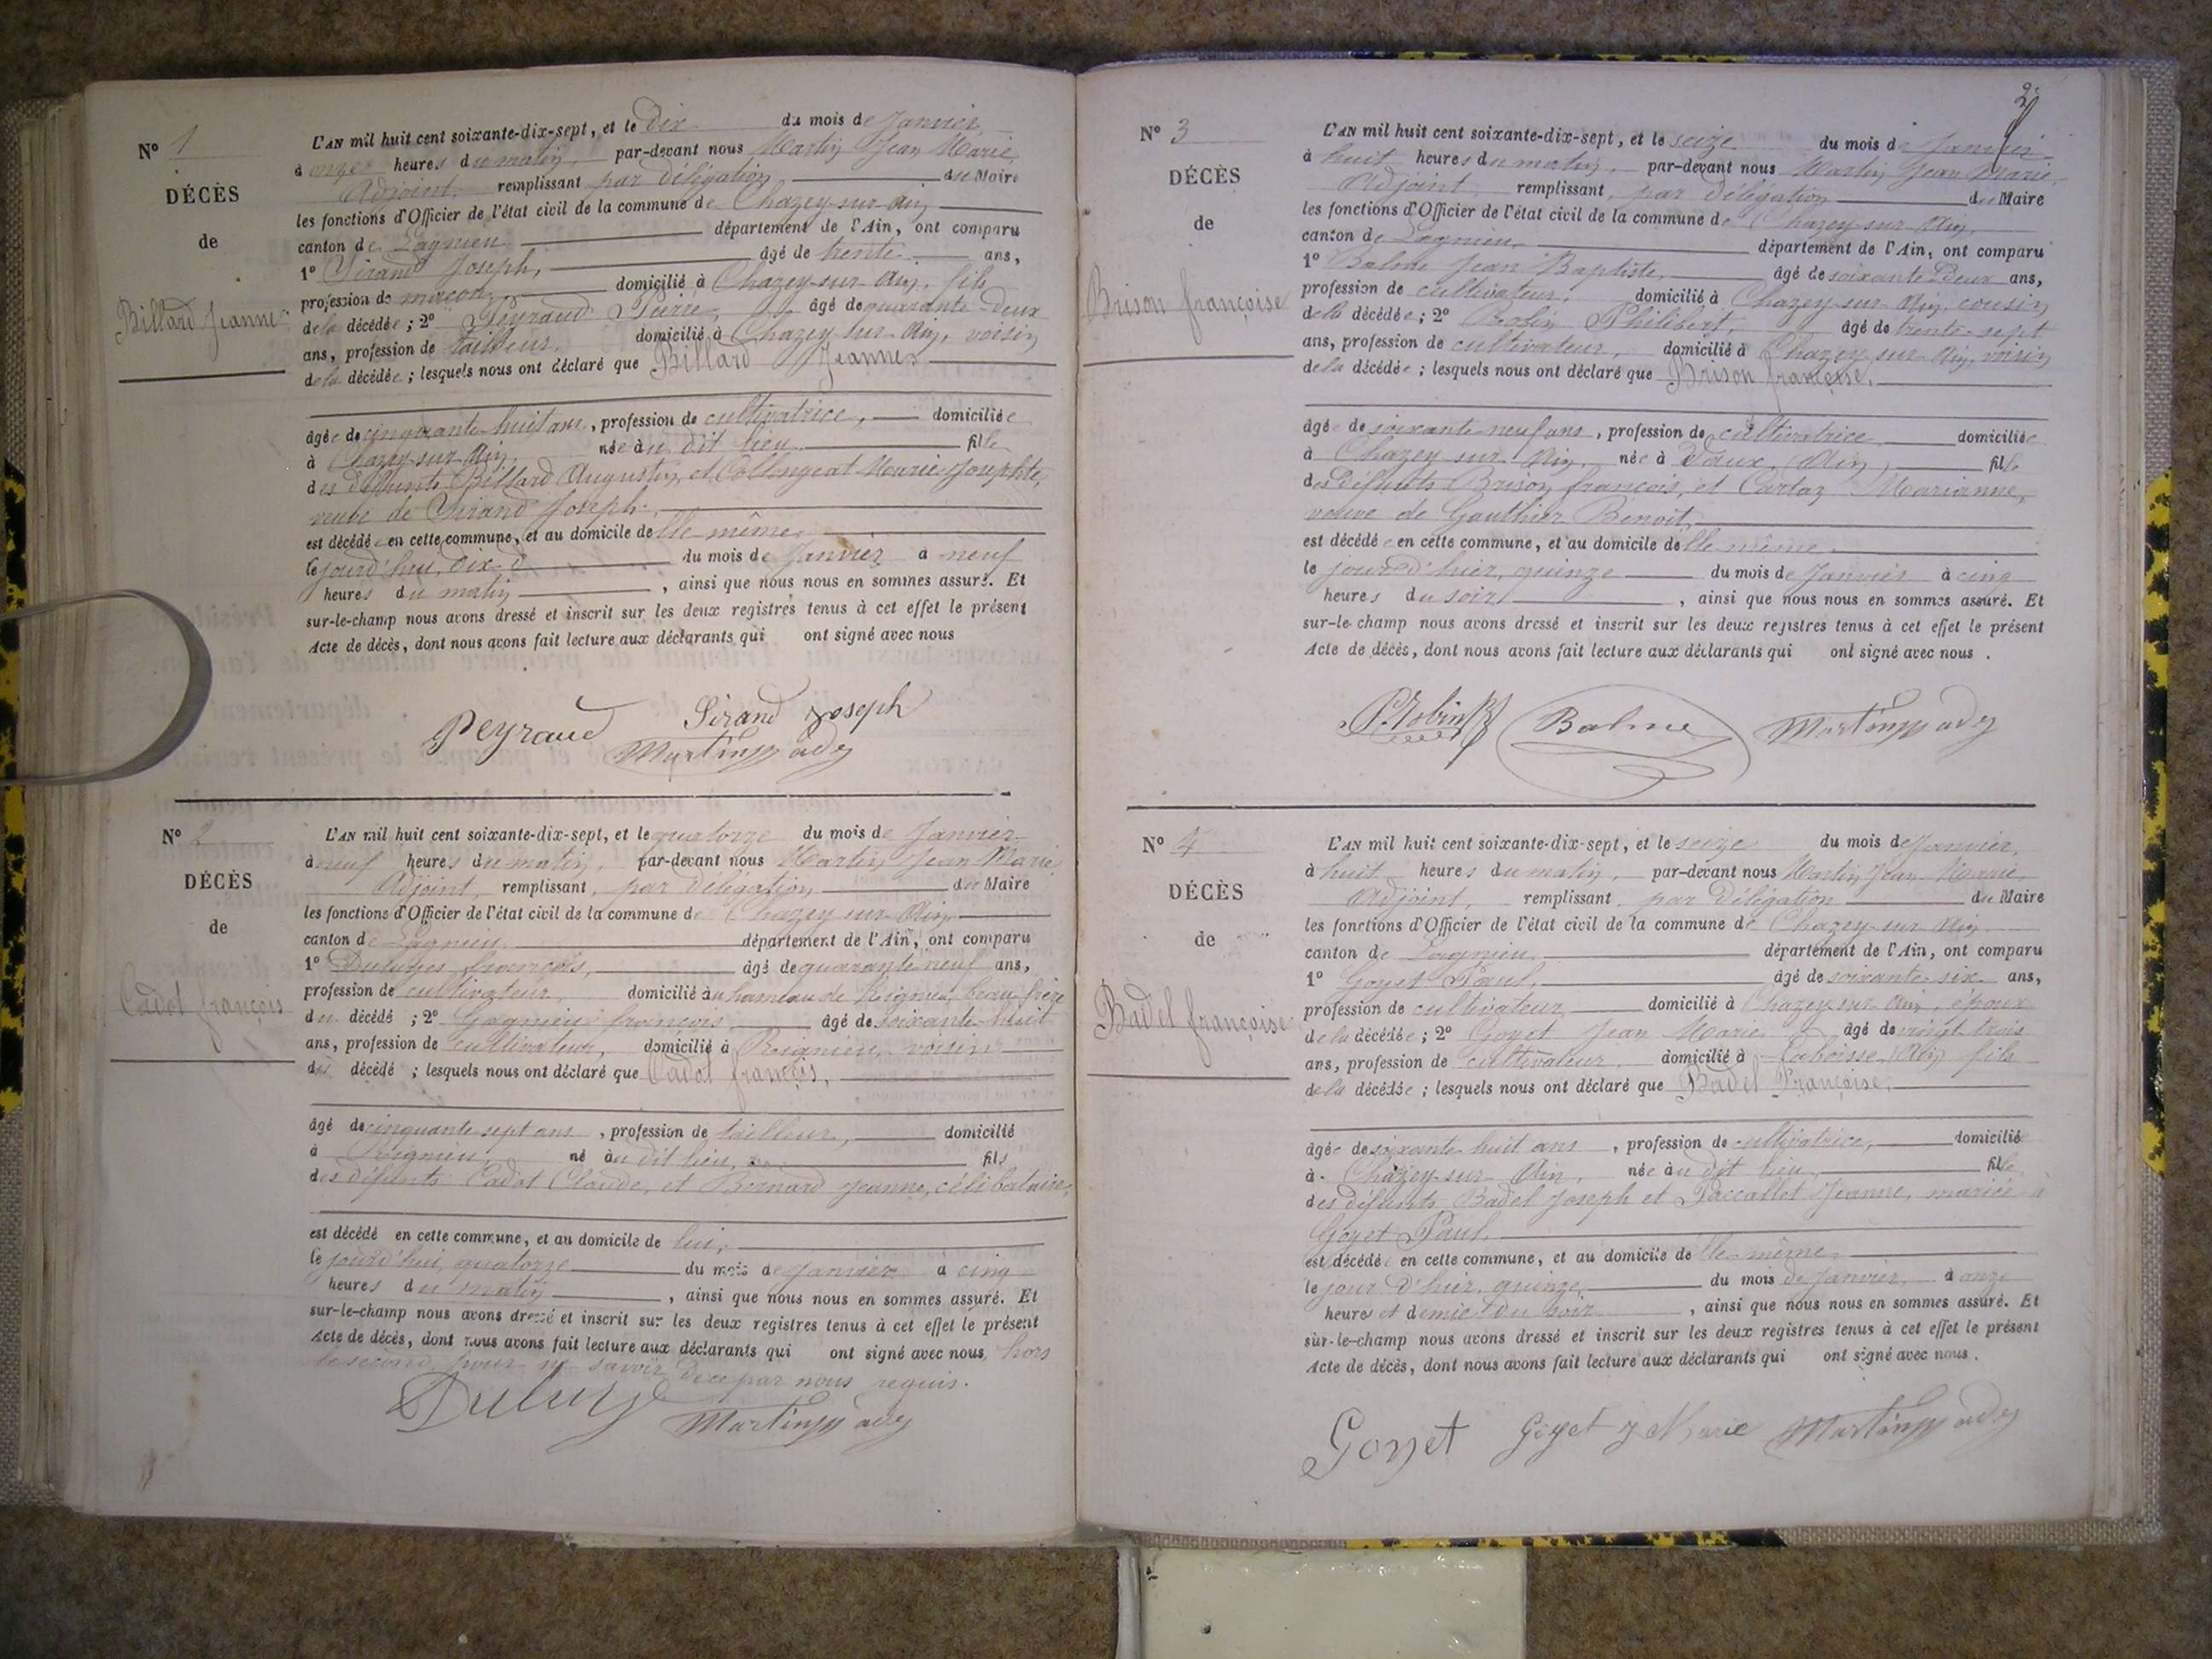 N° 1
DÉCÈS
de
Billard Jeanne
L'AN mil huit cent soixante-dix-sept, et le dix du mois de Janvier
à onze heures du matin, par-devant nous Martin Jean Marie,
Adjoint, remplissant par délégation du Maire
les fonctions d'Officier de l'état civil de la commune de Chazey-sur-Ain
canton de Lagnieu département de l'Ain, ont comparu
1° Sirand Joseph, âgé de trente ans,
profession de maçon, domicilié à Chazey-sur-Ain, fils
de la décédée ; 2° Peyraud Pierre, âgé de quarante deux
ans, profession de tailleur, domicilié à Chazey-sur-Ain, voisin
de la décédée ; lesquels nous ont déclaré que Billard Jeanne
âgée de cinquante-huit ans, profession de cultivatrice, domiciliée
à Chazey-sur-Ain, née au dit lieu fille
des défunts Billard Augustin, et Collingeat Marie Josephte,
veuve de Sirand Joseph,
est décédée en cette commune, et au domicile d'elle-même,
le jourd'hui, dix d du mois de Janvier à neuf
heures du matin, ainsi que nous nous en sommes assuré. Et
sur-le-champ nous avons dressé et inscrit sur les deux registres tenus à cet effet le présent
Acte de décès, dont nous avons fait lecture aux déclarants qui ont signé avec nous
Peyraud Sirand Joseph
Martin adj
N° 2
DÉCÈS
de
Cadot françois
L'AN mil huit cent soixante-dix-sept, et le quatorze du mois de Janvier
à neuf heures du matin, par-devant nous Martin Jean Marie
Adjoint, remplissant, par délégation du Maire
les fonctions d'Officier de l'état civil de la commune de Chazey-sur-Ain
canton de Lagnieu département de l'Ain, ont comparu
1° françois, âgé de quarante-neuf ans,
profession de cultivateur, domicilié au hameau de Rignieu, beau-frère
du décédé ; 2° Gagnieu françois, âgé de soixante-huit
ans, profession de cultivateur, domicilié à Rignieu, voisin
du décédé ; lesquels nous ont déclaré que Cadot françois,
âgé de cinquante-sept ans, profession de tailleur, domicilié
à Rignieu, né au dit lieu, fils
des défunts Cadot Claude, et Bernard Jeanne, célibataire,
est décédé en cette commune, et au domicile de lui,
le jourd'hui, quatorze du mois de Janvier à cinq
heures du matin, ainsi que nous nous en sommes assuré. Et
sur-le-champ nous avons dressé et inscrit sur les deux registres tenus à cet effet le présent
Acte de décès, dont nous avons fait lecture aux déclarants qui ont signé avec nous, hors
le second, pour ne savoir de ce par nous requis.
Martin adj
2
N° 3
DÉCÈS
de
Brison françoise
L'AN mil huit cent soixante-dix-sept, et le seize du mois de Janvier
à huit heures du matin, par-devant nous Martin Jean Marie,
Adjoint, remplissant, par délégation du Maire
les fonctions d'Officier de l'état civil de la commune de Chazey-sur-Ain,
canton de Lagnieu, département de l'Ain, ont comparu
1° Balme Jean Baptiste, âgé de soixante Deux ans,
profession de cultivateur, domicilié à Chazey-sur-Ain, cousin
de la décédée ; 2° Robin Philibert, âgé de trente-sept
ans, profession de cultivateur, domicilié à Chazey-sur-Ain, voisin
de la décédée ; lesquels nous ont déclaré que Brison françoise,
âgée de soixante-neuf ans, profession de cultivatrice domiciliée
à Chazey-sur-Ain, née à Vaux, (Ain) fille
des défunts Brison françois, et Cartaz Marianne,
veuve de Gauthier Benoît,
est décédée en cette commune, et au domicile d'elle-même,
le jour d'hier, quinze du mois de Janvier à cinq
heures du soir, ainsi que nous nous en sommes assuré. Et
sur-le-champ nous avons dressé et inscrit sur les deux registres tenus à cet effet le présent
Acte de décès, dont nous avons fait lecture aux déclarants qui ont signé avec nous.
P. Robin Balme Martin adj
N° 4
DÉCÈS
de
Badel françoise
L'AN mil huit cent soixante-dix-sept, et le seize du mois de Janvier,
à huit heures du matin, par-devant nous Martin Jean Marie
Adjoint, remplissant, par délégation du Maire
les fonctions d'Officier de l'état civil de la commune de Chazey-sur-Ain
canton de Lagnieu département de l'Ain, ont comparu
1° Goyet Paul, âgé de soixante-six ans,
profession de cultivateur domicilié à Chazey-sur-Ain, époux
de la décédée ; 2° Goyet Jean Marie, âgé de vingt trois
ans, profession de cultivateur domicilié à Laboisse, Ain fils
de la décédée ; lesquels nous ont déclaré que Badel Françoise,
âgée de soixante huit ans, profession de cultivatrice, domiciliée
à Chazey-sur-Ain, née au dit lieu fille
des défunts Badel Joseph et Paccallet Jeanne, mariée à
Goyet Paul,
est décédée en cette commune, et au domicile d'elle-même,
le jour d'hier, quinze du mois de Janvier, à onze
heures et demie du soir, ainsi que nous nous en sommes assuré. Et
sur-le-champ nous avons dressé et inscrit sur les deux registres tenus à cet effet le présent
Acte de décès, dont nous avons fait lecture aux déclarants qui ont signé avec nous.
Goyet Goyet J Marie Martin adj